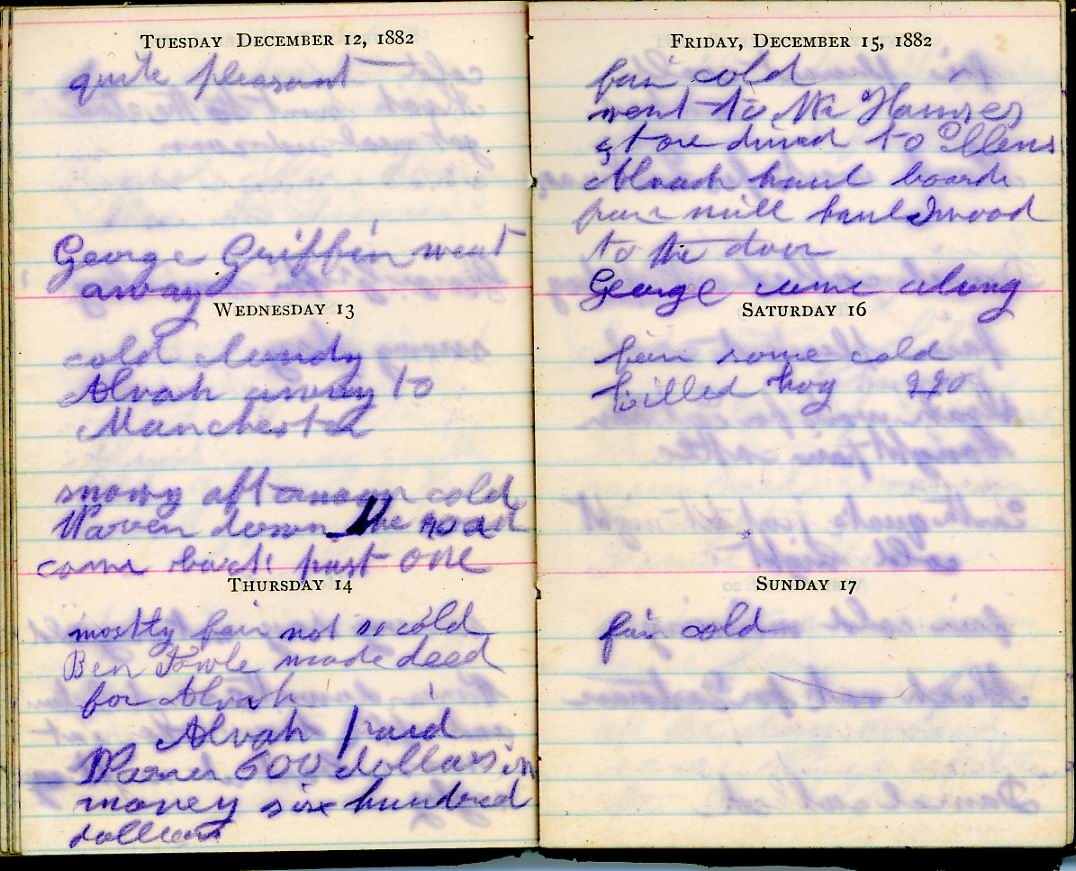 TUESDAY DECEMBER 12, 1882
quite pleasant
George Griffin went
away
WEDNESDAY 13
cold cloudy
Alvah away to
Manchester
snowy afternoon cold
Warren down the road
come back past one
THURSDAY 14
mostly fair not so cold
Ben Towle made deed
for Alvah
Alvah paid
Warren 600 dollars in
money six hundred
dollars
FRIDAY, DECEMBER 15, 1882
fair cold
went to Mr
store to Ellens
Alvah haul boards
from mill haul wood
to the door
George come along
SATURDAY 16
fair some cold
killed hog
SUNDAY 17
fair cold